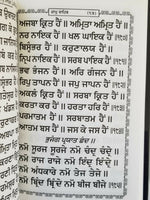 ਅਜਬਾ ਕ੍ਰਿਤ ਹੈਂ ॥ ਅਮ੍ਰਿਤਾ ਮ੍ਰਿਤ ਹੈਂ ॥
ਨਰ ਨਾਇਕ ਹੈਂ ॥ ਖਲ ਘਾਇਕ ਹੈਂ ॥
ਬਿਸ੍ਵੰਭਰ ਹੈਂ ॥ ਕਰੁਣਾਲਯ ਹੈਂ ॥
ਨ੍ਰਿਪ ਨਾਇਕ ਹੈਂ ॥ ਸਰਬ ਪਾਇਕ ਹੈਂ ॥
ਭਵ ਭੰਜਨ ਹੈਂ ॥ ਅਰਿ ਗੰਜਨ ਹੈਂ ॥
ਰਿਪੁ ਤਾਪਨ ਹੈਂ ॥ ਜਪੁ ਜਾਪਨ ਹੈਂ ॥
ਅਕਲੰ ਕ੍ਰਿਤ ਹੈਂ ॥ ਸਰਬਾ ਕ੍ਰਿਤ ਹੈਂ ॥
ਕਰਤਾ ਕਰ ਹੈਂ ॥ ਹਰਤਾ ਹਰਿ ਹੈਂ ॥
ਪਰਮਾਤਮ ਹੈਂ ॥ ਸਰਬਾਤਮ ਹੈਂ ॥
ਆਤਮ ਬਸ ਹੈਂ ॥ ਜਸ ਕੇ ਜਸ ਹੈਂ ॥
ਭੁਜੰਗ ਪ੍ਰਯਾਤ ਛੰਦ ॥
ਨਮੋ ਸੂਰਜ ਸੂਰਜੇ ਨਮੋ ਚੰਦ੍ਰ ਚੰਦ੍ਰੇ ॥
ਨਮੋ ਰਾਜ ਰਾਜੇ ਨਮੋ ਇੰਦ੍ਰ ਇੰਦ੍ਰੇ ॥
ਨਮੋ ਅੰਧਕਾਰੇ ਨਮੋ ਤੇਜ ਤੇਜੇ ॥
ਨਮੋ ਬ੍ਰਿੰਦ ਬ੍ਰਿੰਦੇ ਨਮੋ ਬੀਜ ਬੀਜੇ